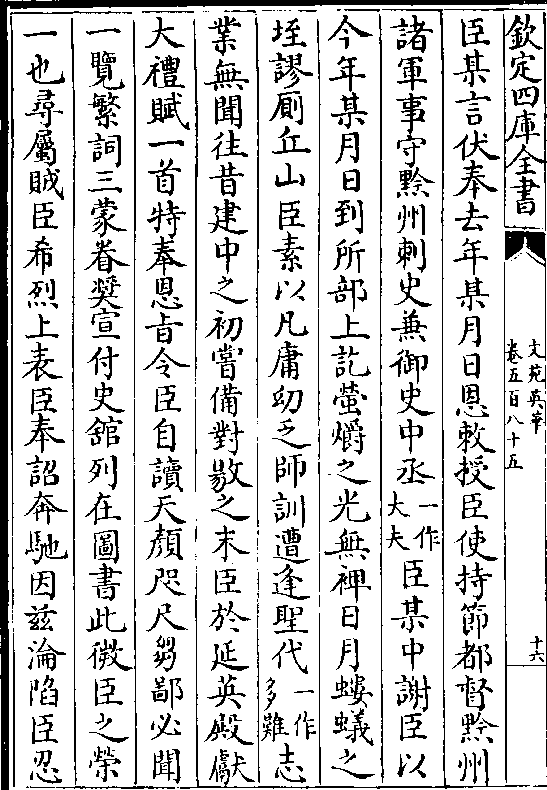 欽定四庫全書
文苑英華
卷五百八十五
十六
臣某言伏奉去年某月日恩敕授臣使持節都督黔州
諸軍事守黔州刺史兼御史中丞一作大夫臣某中謝臣以
今年某月日到所部上訖螢爝之光無裨日月螻蟻之
垤謬厠丘山臣素以凡庸幼乏師訓遭逢聖代一作多難志
業無聞往昔建中之初嘗備對敭之末臣於延英殿獻
大禮賦一首特奉恩旨令臣自讀天顔咫尺芻鄙必聞
一覽繁詞三蒙眷奬宣付史舘列在圖書此微臣之榮
一也尋屬賊臣希烈上表臣奉詔奔馳因兹淪陷臣忍